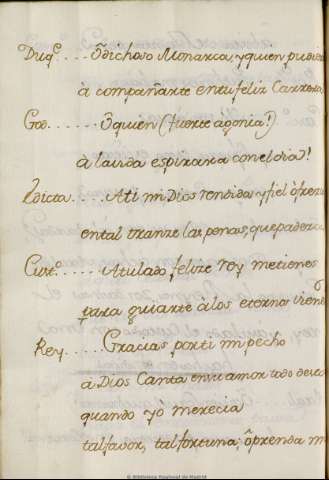 Duqe.... O dichoso Monarca, y quien pudiera
à compañarte en tu feliz Carrera,
Gov...... O quien (fuerte agonia!)
à la vida espirara con el dia!
Edicta.... A ti mi Dios rendida y fiel ofrezco
en tal tranze las penas, que padezco
Cust...... A tu lado felize rey me tienes
para guiarte à los eternos viene
Rey..... Gracias por ti mi pecho
à Dios Canta en su amor todo desecho
quando yo merecia
tal favor, tal fortuna; ò prenda m
© Biblioteca Nacional de Madrid